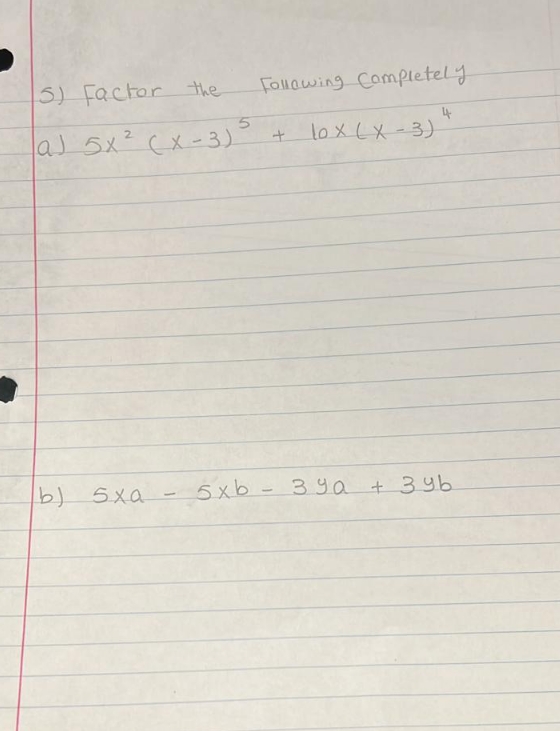 5) Factor the Following Completely
a) 5x² (x-3)⁵ + 10x(x-3)⁴
b) 5xa - 5xb - 3ya + 3yb